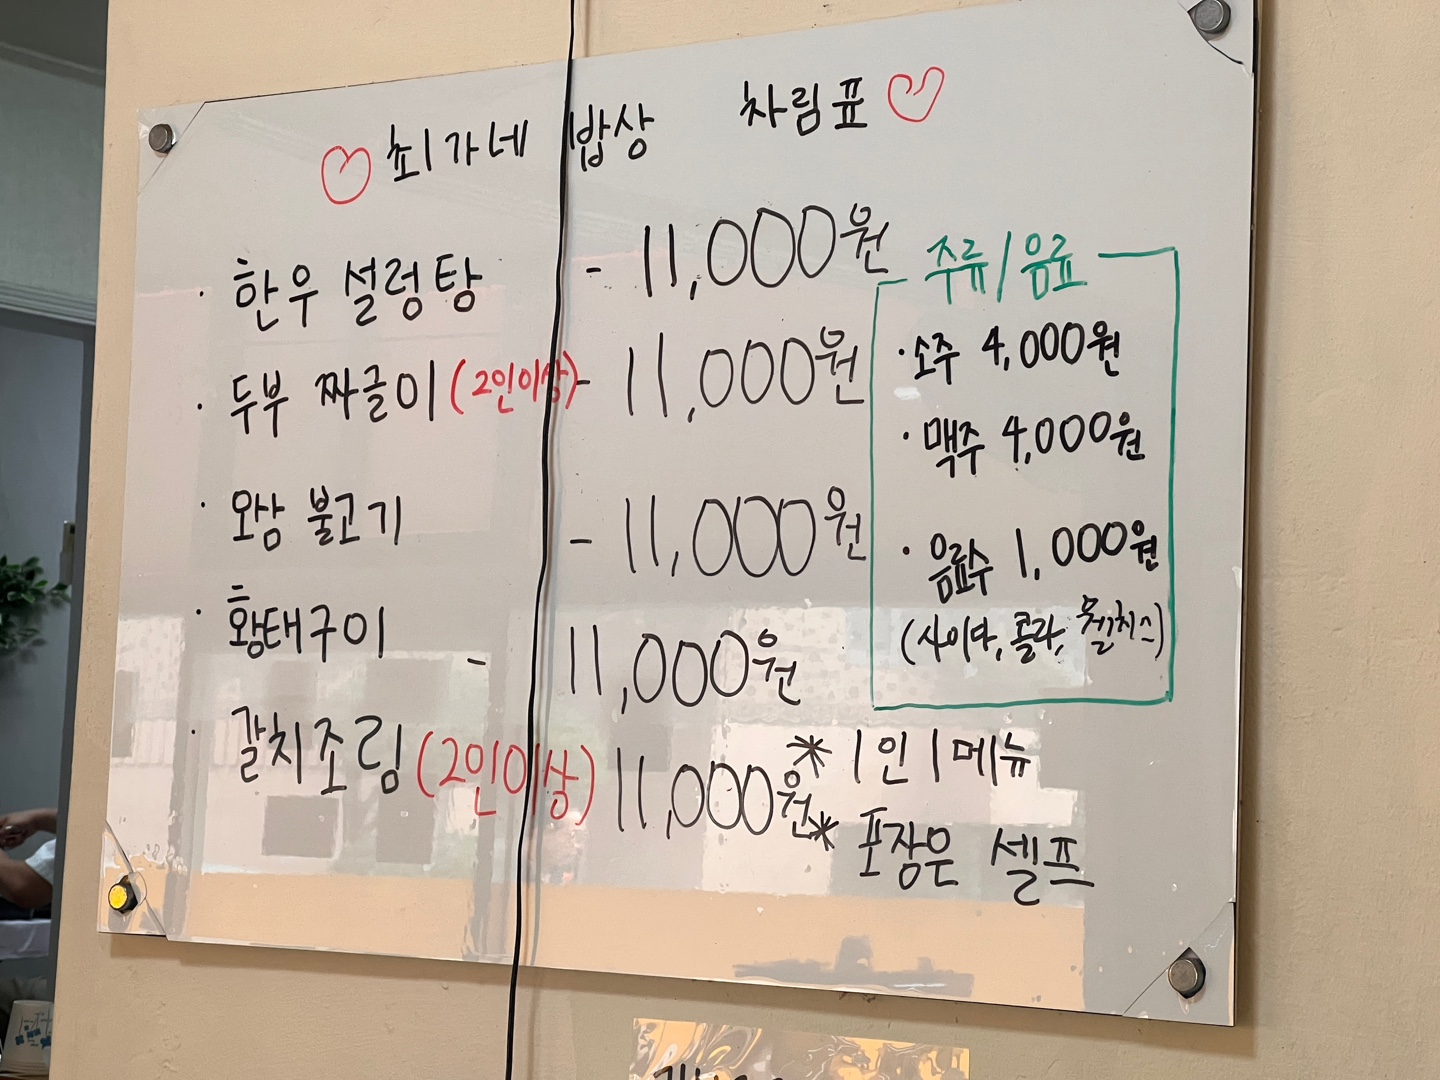 최가네 밥상 차림표
· 한우 설렁탕 - 11,000원
· 두부 짜글이 (2인이상) - 11,000원
· 왕삼 불고기 - 11,000원
· 황태구이 - 11,000원
· 갈치조림 (2인이상) 11,000원
주류/음료
· 소주 4,000원
· 맥주 4,000원
· 음료수 1,000원
(사이다, 콜라, 웰치스)
* 1인 1메뉴
* 포장은 셀프